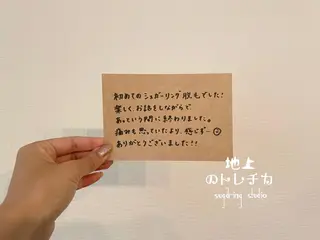 初めてのシュガーリング脱毛でした！
楽しく、お話をしながらで
あっという間に終わりました。
痛みも思っていたより、感じず…
ありがとうございました!!
地上
のトレチカ
sugaring studio